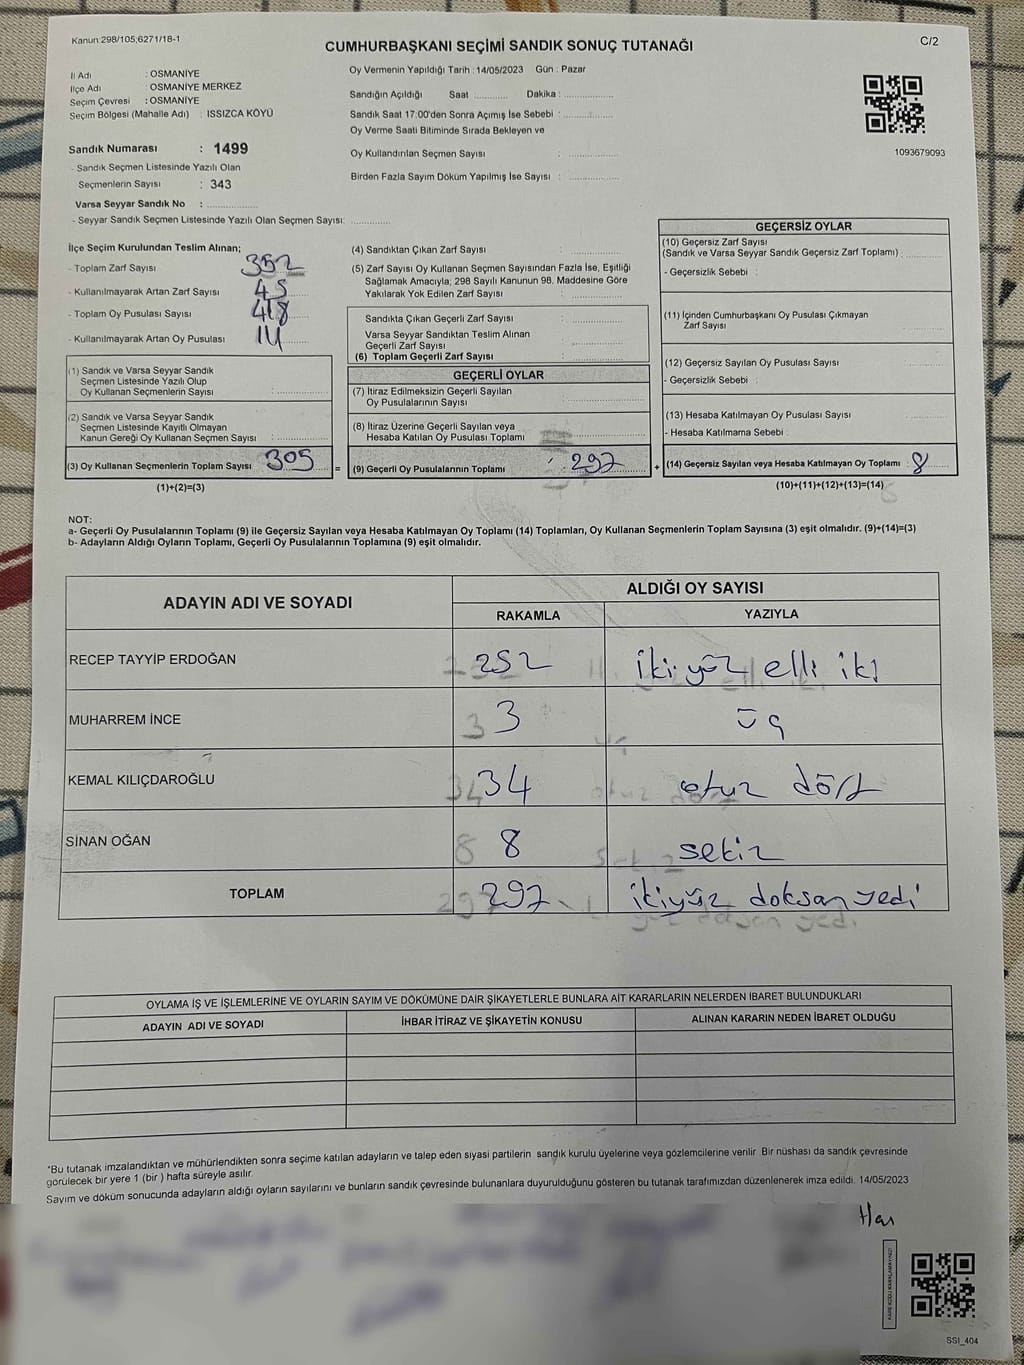 Kanun:298/105;6271/18-1
CUMHURBAŞKANI SEÇİMİ SANDIK SONUÇ TUTANAĞI
C/2
İl Adı : OSMANİYE
İlçe Adı : OSMANİYE MERKEZ
Seçim Çevresi : OSMANİYE
Seçim Bölgesi (Mahalle Adı) : ISSIZCA KÖYÜ
Oy Vermenin Yapıldığı Tarih : 14/05/2023 Gün : Pazar
Sandığın Açıldığı Saat ............ Dakika : ............
Sandık Saat 17:00'den Sonra Açımış İse Sebebi : ............
Oy Verme Saati Bitiminde Sırada Bekleyen ve
Oy Kullandırılan Seçmen Sayısı : ............
Birden Fazla Sayım Döküm Yapılmış İse Sayısı : ............
1093679093
Sandık Numarası : 1499
- Sandık Seçmen Listesinde Yazılı Olan
Seçmenlerin Sayısı : 343
Varsa Seyyar Sandık No : ............
- Seyyar Sandık Seçmen Listesinde Yazılı Olan Seçmen Sayısı: ............
İlçe Seçim Kurulundan Teslim Alınan;
- Toplam Zarf Sayısı 352
- Kullanılmayarak Artan Zarf Sayısı 45
- Toplam Oy Pusulası Sayısı 418
- Kullanılmayarak Artan Oy Pusulası
(1) Sandık ve Varsa Seyyar Sandık
Seçmen Listesinde Yazılı Olup
Oy Kullanan Seçmenlerin Sayısı : ............
(2) Sandık ve Varsa Seyyar Sandık
Seçmen Listesinde Kayıtlı Olmayan
Kanun Gereği Oy Kullanan Seçmen Sayısı : ............
(3) Oy Kullanan Seçmenlerin Toplam Sayısı 305
(1)+(2)=(3)
(4) Sandıktan Çıkan Zarf Sayısı : ............
(5) Zarf Sayısı Oy Kullanan Seçmen Sayısından Fazla İse, Eşitliği
Sağlamak Amacıyla; 298 Sayılı Kanunun 98. Maddesine Göre
Yakılarak Yok Edilen Zarf Sayısı : ............
Sandıkta Çıkan Geçerli Zarf Sayısı : ............
Varsa Seyyar Sandıktan Teslim Alınan
Geçerli Zarf Sayısı : ............
(6) Toplam Geçerli Zarf Sayısı : ............
GEÇERLİ OYLAR
(7) İtiraz Edilmeksizin Geçerli Sayılan
Oy Pusulalarının Sayısı : ............
(8) İtiraz Üzerine Geçerli Sayılan veya
Hesaba Katılan Oy Pusulası Toplamı
= (9) Geçerli Oy Pusulalarının Toplamı : 297
GEÇERSİZ OYLAR
(10) Geçersiz Zarf Sayısı
(Sandık ve Varsa Seyyar Sandık Geçersiz Zarf Toplamı) : ............
- Geçersizlik Sebebi :
(11) İçinden Cumhurbaşkanı Oy Pusulası Çıkmayan
Zarf Sayısı
(12) Geçersiz Sayılan Oy Pusulası Sayısı
- Geçersizlik Sebebi :
(13) Hesaba Katılmayan Oy Pusulası Sayısı
- Hesaba Katılmama Sebebi :
+ (14) Geçersiz Sayılan veya Hesaba Katılmayan Oy Toplamı : 8
(10)+(11)+(12)+(13)=(14)
NOT:
a- Geçerli Oy Pusulalarının Toplamı (9) ile Geçersiz Sayılan veya Hesaba Katılmayan Oy Toplamı (14) Toplamları, Oy Kullanan Seçmenlerin Toplam Sayısına (3) eşit olmalıdır. (9)+(14)=(3)
b- Adayların Aldığı Oyların Toplamı, Geçerli Oy Pusulalarının Toplamına (9) eşit olmalıdır.
ADAYIN ADI VE SOYADI
ALDIĞI OY SAYISI
RAKAMLA YAZIYLA
RECEP TAYYİP ERDOĞAN 252 iki yüz elli iki
MUHARREM İNCE 3 üç
KEMAL KILIÇDAROĞLU 34 otuz dört
SİNAN OĞAN 8 sekiz
TOPLAM 297 ikiyüz doksan yedi
OYLAMA İŞ VE İŞLEMLERİNE VE OYLARIN SAYIM VE DÖKÜMÜNE DAİR ŞİKAYETLERLE BUNLARA AİT KARARLARIN NELERDEN İBARET BULUNDUKLARI
ADAYIN ADI VE SOYADI İHBAR İTİRAZ VE ŞİKAYETİN KONUSU ALINAN KARARIN NEDEN İBARET OLDUĞU
*Bu tutanak imzalandıktan ve mühürlendikten sonra seçime katılan adayların ve talep eden siyasi partilerin sandık kurulu üyelerine veya gözlemcilerine verilir. Bir nüshası da sandık çevresinde
görülecek bir yere 1 (bir ) hafta süreyle asılır.
Sayım ve döküm sonucunda adayların aldığı oyların sayılarını ve bunların sandık çevresinde bulunanlara duyurulduğunu gösteren bu tutanak tarafımızdan düzenlenerek imza edildi. 14/05/2023
SSI_404